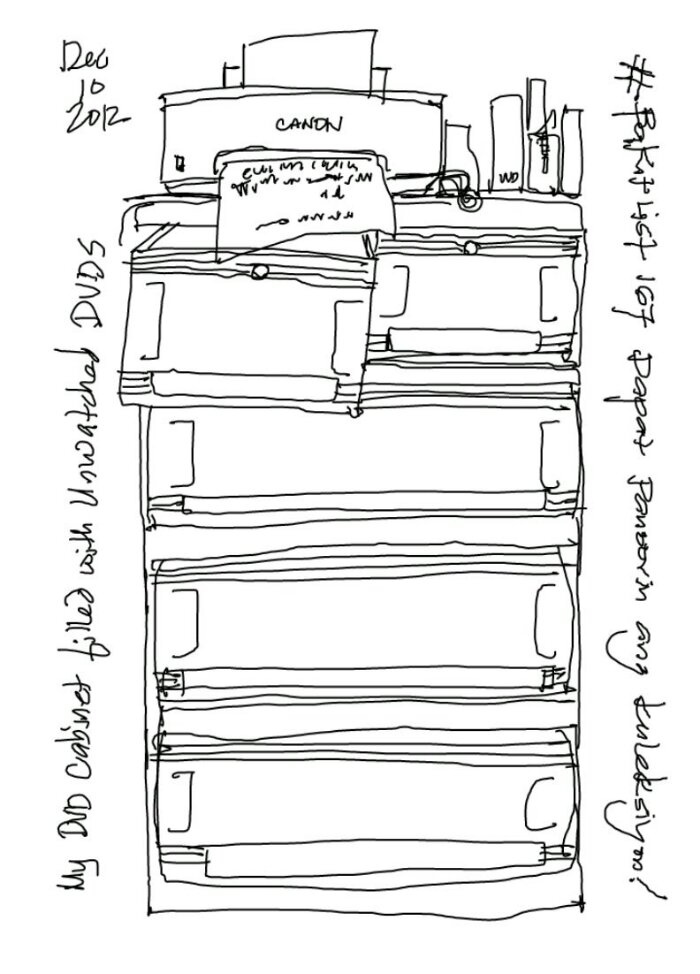 Dec
10
2012
CANON
WD
My DVD Cabinet filled with Unwatched DVDS
#PaKit List 167 Dapat Panoorin ang